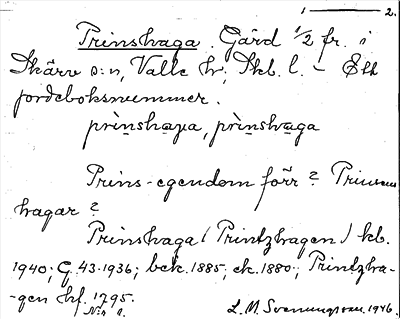 1 ——— 2.
Prinshaga. Gård 1/2 fr. i
Skärv s:n, Valle hd, Skb. l. – Ett
jordeboksnummer.
prìnshaga, prìnshaga
Prins-egendom förr? Prinsens
hagar?
Prinshaga (Printzhagen) kb.
1940; G. 43-1936; bek. 1885; ek. 1880; Printzha-
-gen hf. 1795.
N:r 1.
L. M. Svenungsson. 1946.